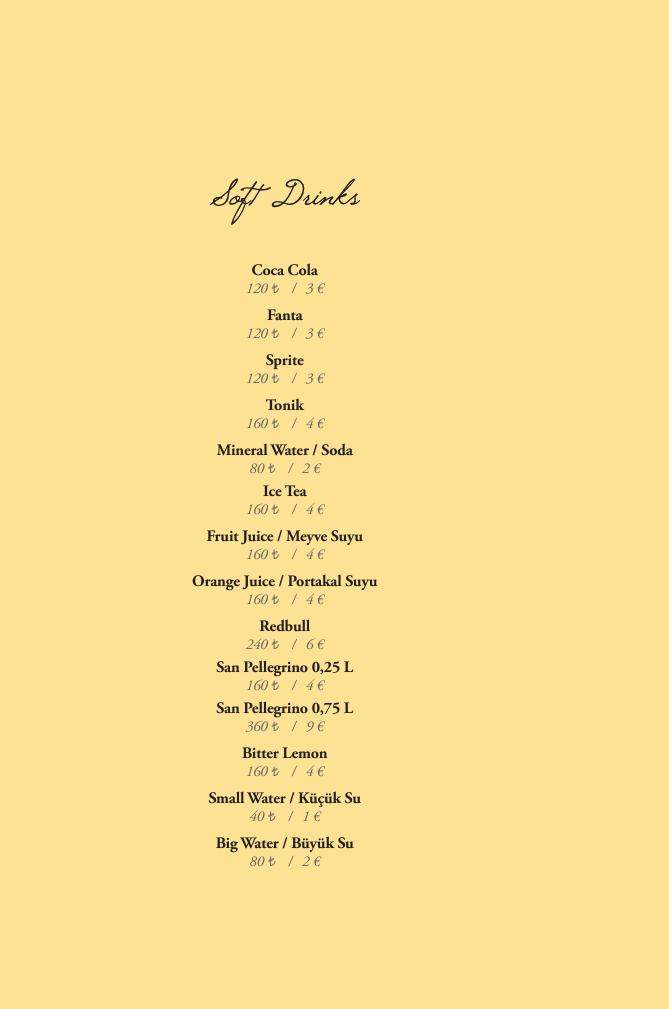 Soft Drinks
Coca Cola
120 ₺ / 3 €
Fanta
120 ₺ / 3 €
Sprite
120 ₺ / 3 €
Tonik
160 ₺ / 4 €
Mineral Water / Soda
80 ₺ / 2 €
Ice Tea
160 ₺ / 4 €
Fruit Juice / Meyve Suyu
160 ₺ / 4 €
Orange Juice / Portakal Suyu
160 ₺ / 4 €
Redbull
240 ₺ / 6 €
San Pellegrino 0,25 L
160 ₺ / 4 €
San Pellegrino 0,75 L
360 ₺ / 9 €
Bitter Lemon
160 ₺ / 4 €
Small Water / Küçük Su
40 ₺ / 1 €
Big Water / Büyük Su
80 ₺ / 2 €